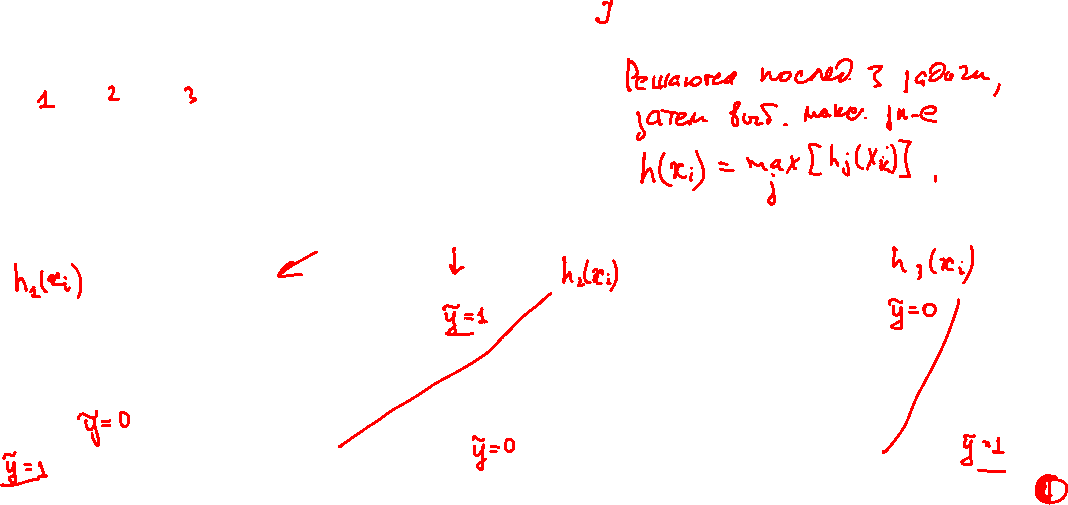 y
Решаются послед. 3 задачи,
1 2 3
затем выб. макс. зн-е
h(x_i) = max_j [h_j(x_i)].
h_1(x_i)
h_2(x_i)
h_3(x_i)
ỹ=1
ỹ=0
ỹ=0
ỹ=0
ỹ=1
ỹ=1